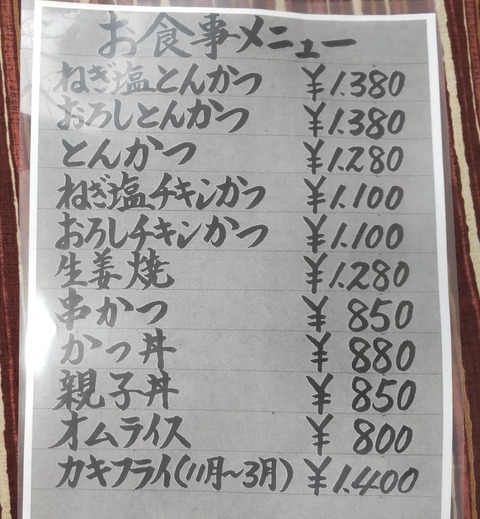 お食事メニュー
ねぎ塩とんかつ ¥1.380
おろしとんかつ ¥1.380
とんかつ ¥1.280
ねぎ塩チキンかつ ¥1.100
おろしチキンかつ ¥1.100
生姜焼 ¥1.280
串かつ ¥850
かっ丼 ¥880
親子丼 ¥850
オムライス ¥800
カキフライ(11月~3月) ¥1.400